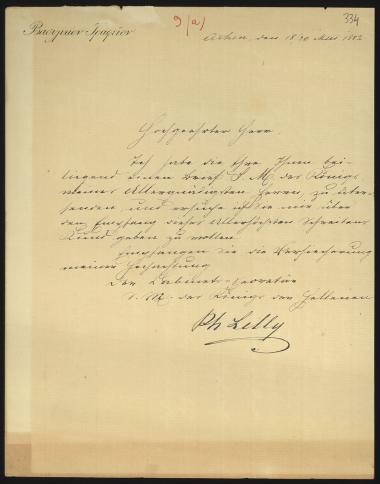 Βασιλικὸν Γραφεῖον
9(a)
334
Athen, den 18/30 Mai 1882
Hochgeehrter Herr
Ich habe die Ehre Ihnen bei-
liegend einen Brief S. M. des Königs
meines Allergnädigsten Herrn, zu über-
senden, und ersuche Sie mir über
den Empfang dieses Allerhöchsten Schreibens
Kund geben zu wollen.
Empfangen Sie die Versicherung
meiner Hochachtung
Der Cabinets-Secretär
S. M. des Königs der Hellenen